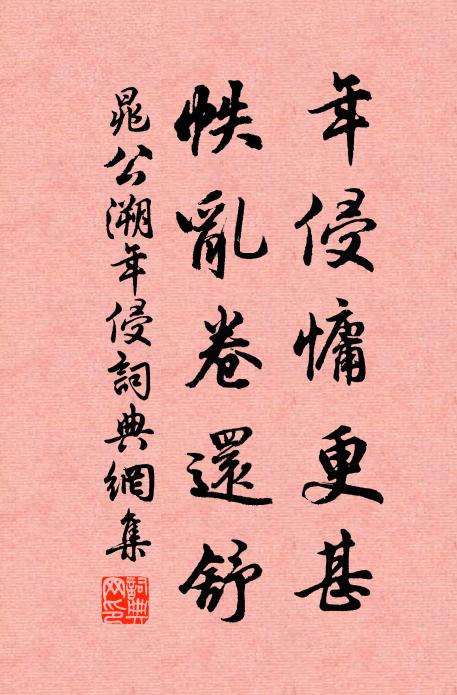 年侵慵更甚
帙亂卷還舒
晁公溯年侵詞典網集
詞典網印